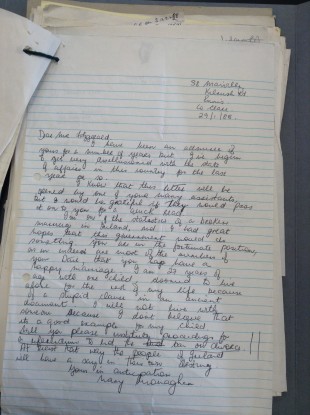 Kilrush Rd
Ennis
Co Clare
29/1/84
I have been an admirer of
yours for a number of years but I've begun
to get very disillusioned with the state
of affairs in this country for the last
year or so
I know that this letter will be
opened by one of your many assistants,
but I would be grateful if they would pass
it on to you for a quick read
I'm one of the statistics of a broken
marriage in Ireland and I had great
hopes that this government would do
something. You are in the fortunate position,
as in indeed are most of the members of
your Dáil that you may have a
happy marriage. I am 27 years of
age with one child, doomed to live
alone for the rest of my life because
of a stupid clause in an ancient
document. I will not live with
someone because I don't believe that
its a good example for my child
Will you please institute proceedings for
a referendum to lift the ban on divorce.
At least that way the people of Ireland
will have a say in their own destiny
Yours in anticipation
Mary